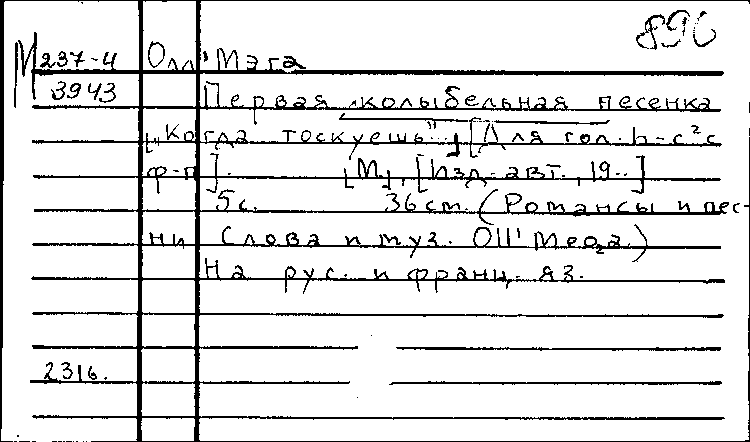 896
М 237-4 Олл' Мэга
3943 Первая колыбельная песенка
[„Когда тоскуешь"]. [Для гол. h-c²с
ф-п]. [М.], [Изд. авт., 19..]
5с. 36см. (Романсы и пес-
ни Слова и муз. Oll' Мega.)
На рус. и франц. яз.
2316.